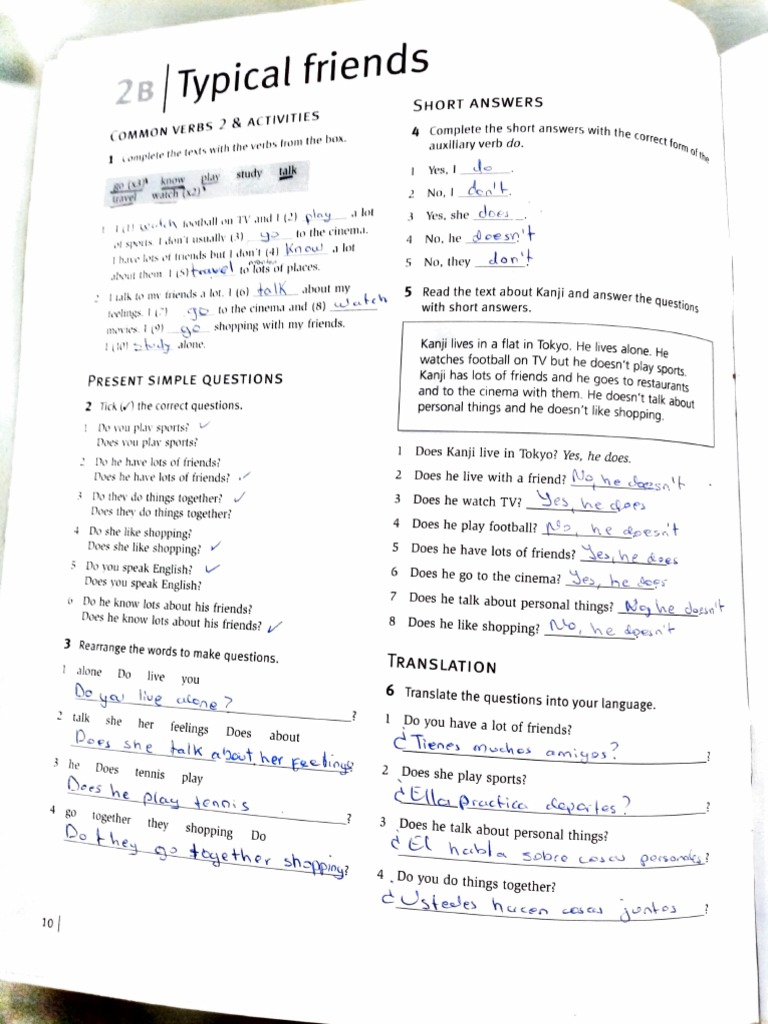 2B Typical friends
COMMON VERBS 2 & ACTIVITIES
1 Complete the texts with the verbs from the box.
go (x3) know play study talk
travel watch (x2)
1 I (1) watch football on TV and I (2) play a lot
of sports. I don't usually (3) go to the cinema.
I have lots of friends but I don't (4) know a lot
about them. I (5) travel to lots of places.
2 I talk to my friends a lot. I (6) talk about my
feelings. I (7) go to the cinema and (8) watch
movies. I (9) go shopping with my friends.
I (10) study alone.
PRESENT SIMPLE QUESTIONS
2 Tick (✓) the correct questions.
1 Do you play sports? ✓
Does you play sports?
2 Do he have lots of friends?
Does he have lots of friends? ✓
3 Do they do things together? ✓
Does they do things together?
4 Do she like shopping?
Does she like shopping? ✓
5 Do you speak English? ✓
Does you speak English?
6 Do he know lots about his friends?
Does he know lots about his friends? ✓
3 Rearrange the words to make questions.
1 alone Do live you
Do you live alone? ?
2 talk she her feelings Does about
Does she talk about her feelings?
3 he Does tennis play
Does he play tennis ?
4 go together they shopping Do
Do they go together shopping?
10
SHORT ANSWERS
4 Complete the short answers with the correct form of the
auxiliary verb do.
1 Yes, I do.
2 No, I don't.
3 Yes, she does.
4 No, he doesn't
5 No, they don't
5 Read the text about Kanji and answer the questions
with short answers.
Kanji lives in a flat in Tokyo. He lives alone. He
watches football on TV but he doesn't play sports.
Kanji has lots of friends and he goes to restaurants
and to the cinema with them. He doesn't talk about
personal things and he doesn't like shopping.
1 Does Kanji live in Tokyo? Yes, he does.
2 Does he live with a friend? No, he doesn't
3 Does he watch TV? Yes, he does
4 Does he play football? No, he doesn't
5 Does he have lots of friends? Yes, he does
6 Does he go to the cinema? Yes, he does
7 Does he talk about personal things? No, he doesn't
8 Does he like shopping? No, he doesn't
TRANSLATION
6 Translate the questions into your language.
1 Do you have a lot of friends?
¿Tienes muchos amigos? ?
2 Does she play sports?
¿Ella practica deportes? ?
3 Does he talk about personal things?
¿El habla sobre cosas personales?
4 Do you do things together?
¿Ustedes hacen cosas juntos ?